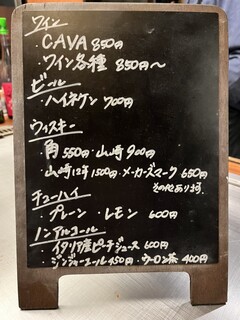 ワイン
・CAVA 850円
・ワイン各種 850円〜
ビール
・ハイネケン 700円
ウィスキー
・角 550円・山崎 900円
・山崎12年 1500円・メーカーズマーク 650円
その他あります。
チューハイ
・プレーン・レモン 600円
ノンアルコール
・イタリア産ピーチジュース 600円
・ジンジャーエール 450円・ウーロン茶 400円